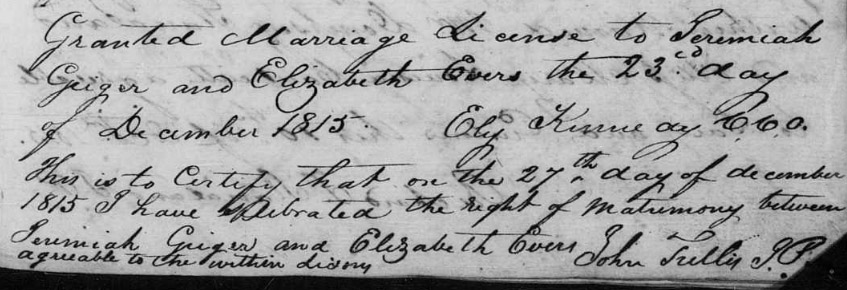 Granted Marriage License to Jeremiah
Geiger and Elizabeth Evers the 23.cd day
of December 1815. Ely Kennedy C.C.O.
This is to Certify that on the 27th day of december
1815 I have Selibrated the right of Matrimony between
Jeremiah Geiger and Elizabeth Evers John Tullis J.P.
agreeable to the within